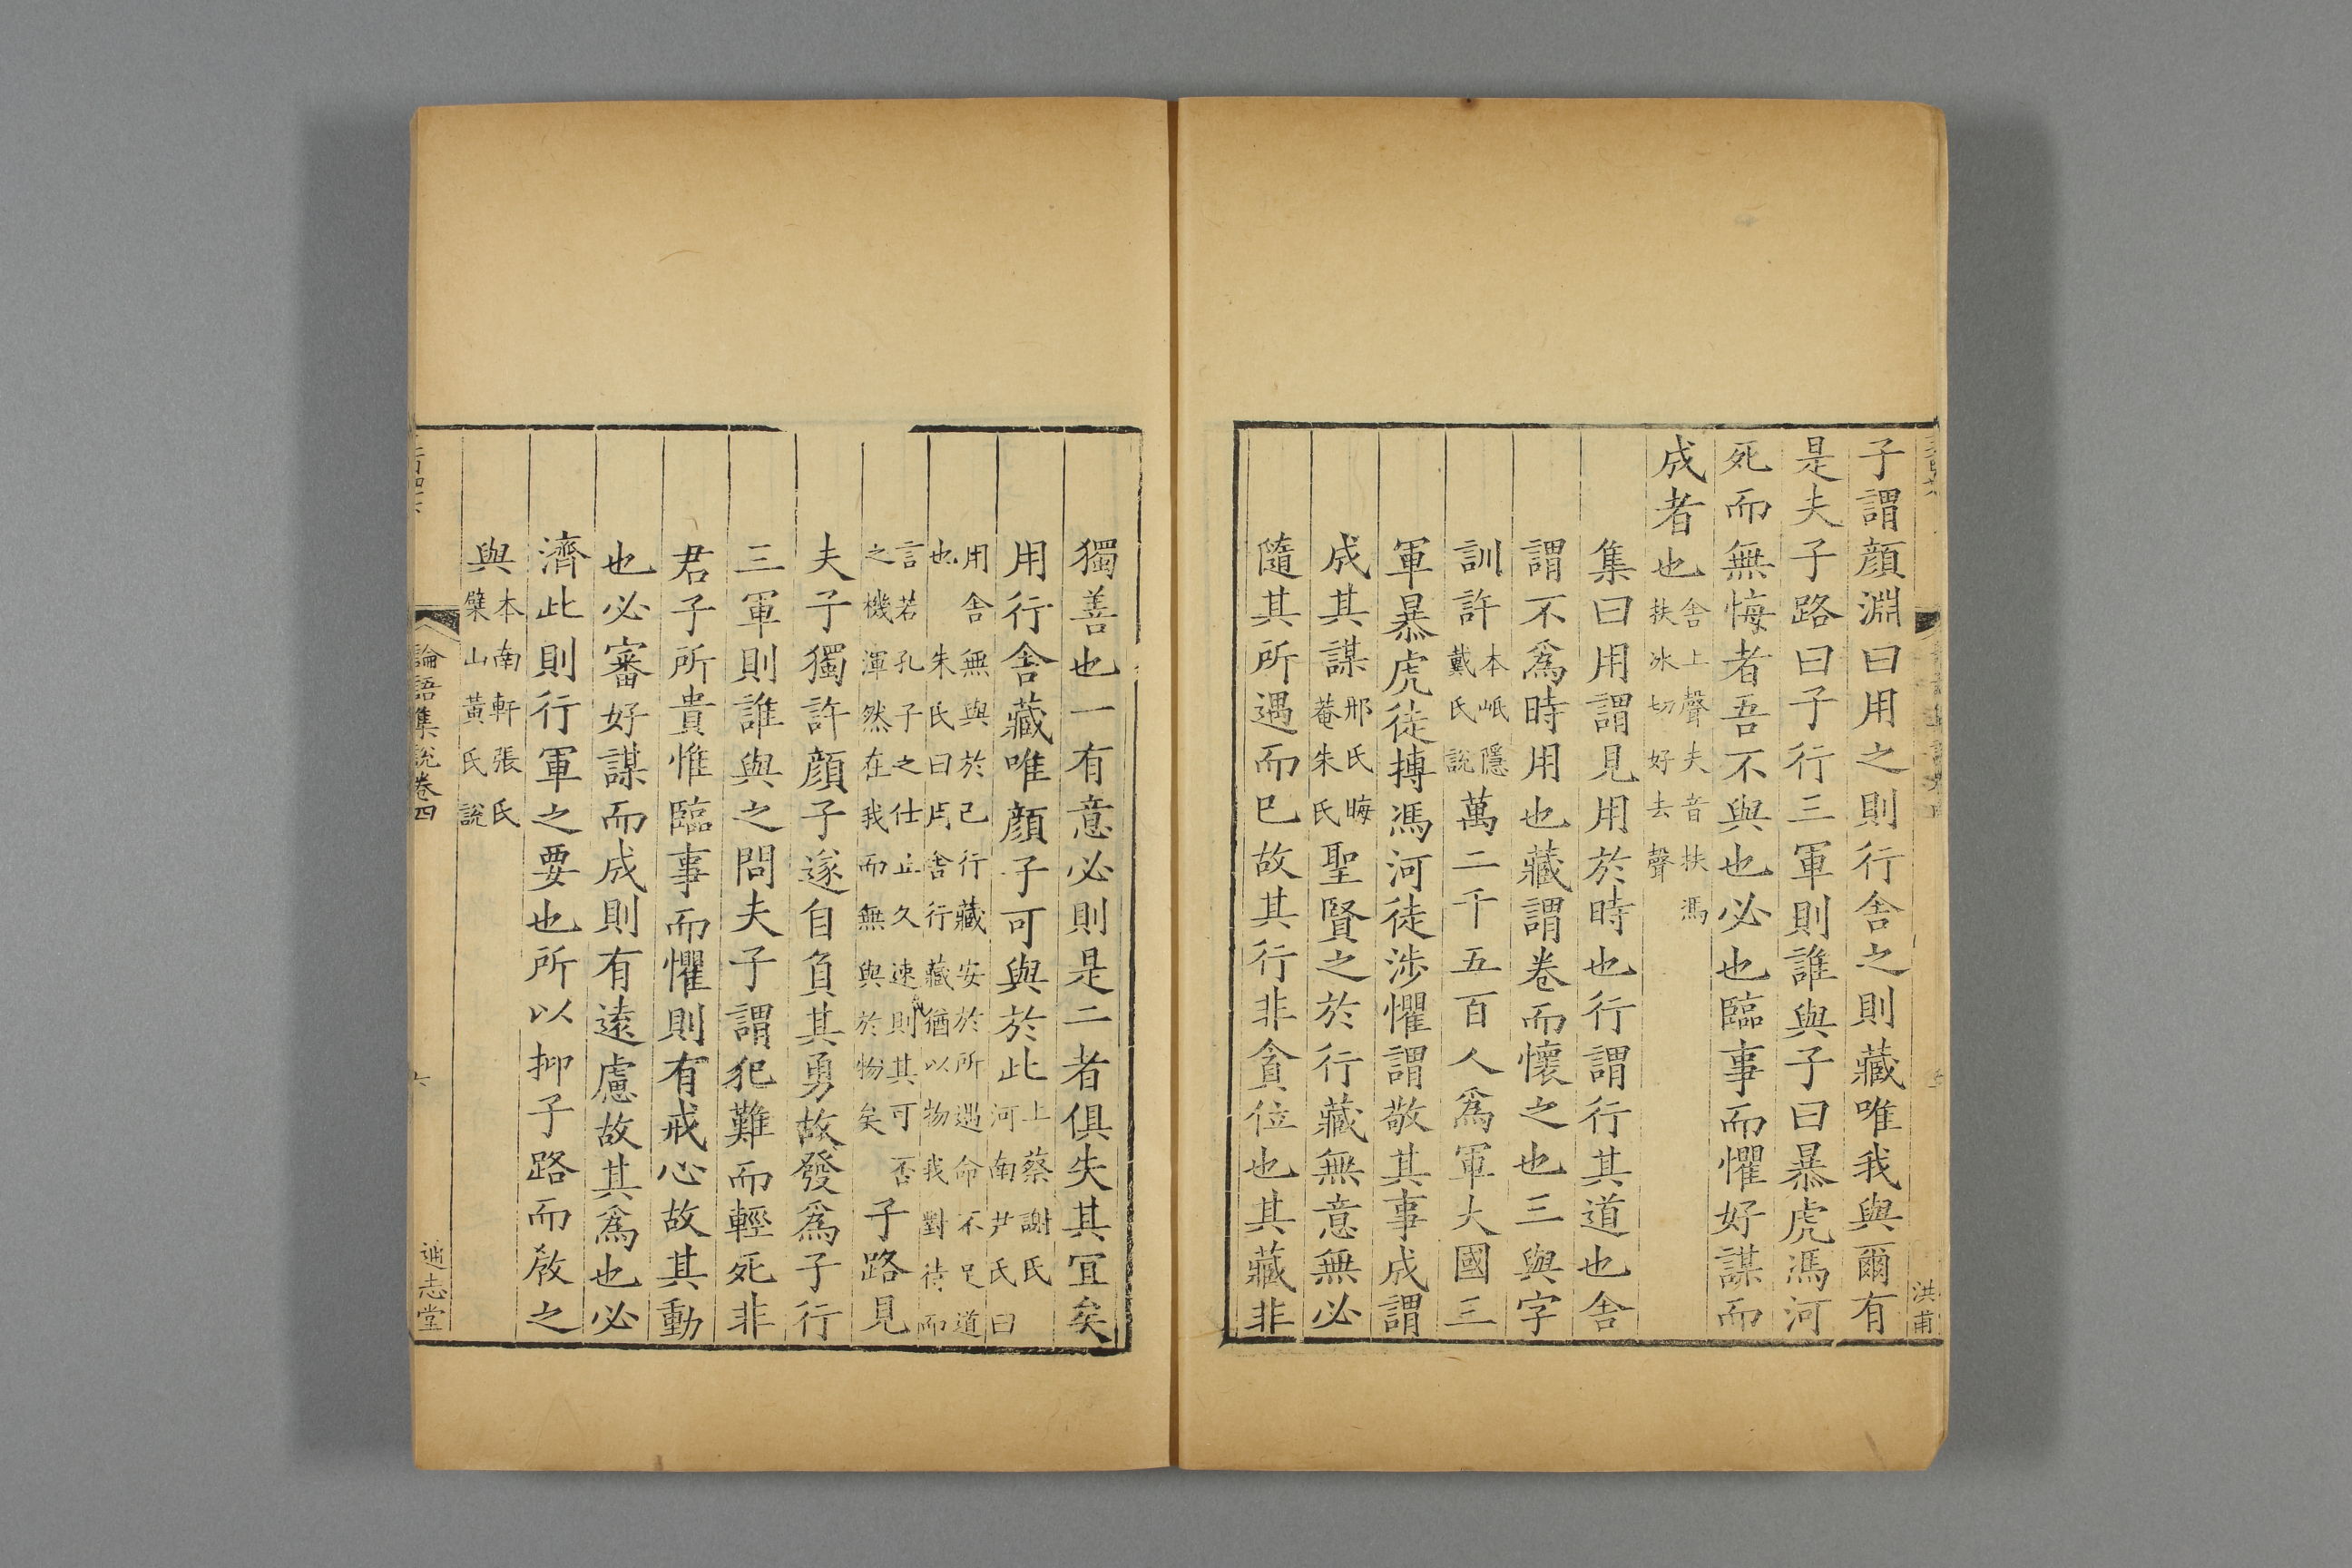 子謂顔淵曰用之則行舍之則藏唯我與爾有
是夫子路曰子行三軍則誰與子曰暴虎馮河
死而無悔者吾不與也必也臨事而懼好謀而
成者也舍上聲夫音扶馮
扶冰切好去聲
集曰用謂見用於時也行謂行其道也舍
謂不爲時用也藏謂卷而懷之也三與字
訓許本岷隱
戴氏說萬二千五百人爲軍大國三
軍暴虎徒搏馮河徒涉懼謂敬其事成謂
成其謀邢氏晦
菴朱氏聖賢之於行藏無意無必
隨其所遇而已故其行非貪位也其藏非
洪甫
獨善也一有意必則是二者俱失其宜矣
用行舍藏唯顔子可與於此上蔡謝氏
河南尹氏曰
用舍無與於己行藏安於所遇命不足道
也朱氏曰用舍行藏猶以物我對待而
言若孔子之仕止久速則其可否
之機渾然在我而無與於物矣子路見
夫子獨許顔子遂自負其勇故發爲子行
三軍則誰與之問夫子謂犯難而輕死非
君子所貴惟臨事而懼則有戒心故其動
也必審好謀而成則有遠慮故其爲也必
濟此則行軍之要也所以抑子路而教之
與本南軒張氏
檗山黃氏說
論語集説卷四
六
通志堂